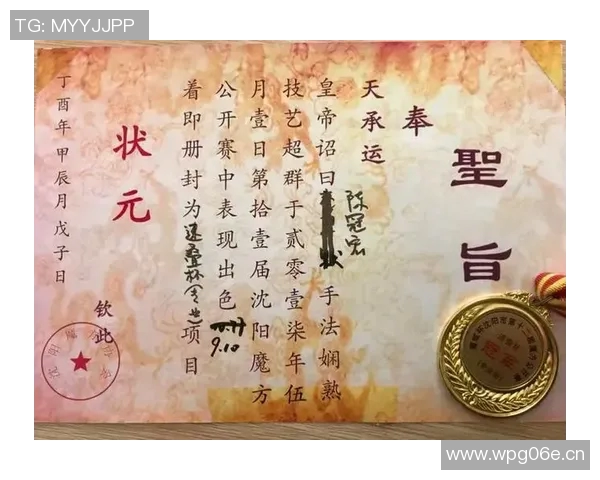 TG: MYYJJPP
聖旨
奉
天承运
皇帝诏曰陈冠宏手法娴熟
技艺超群于贰零壹柒年伍
月壹日第拾壹届沈阳魔方
公开赛中表现出色9.10
着即册封为速叠杯(专业)项目
状元
钦此
丁酉年甲辰月戊子日
www.wpg06e.cn